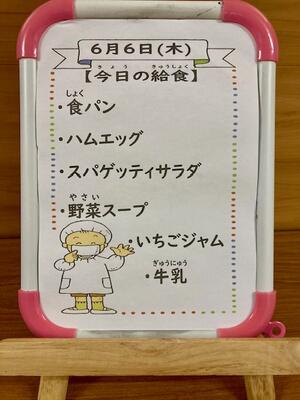 6月6日(木)
きょう きゅうしょく
【今日の給食】
しょく
・食パン
・ハムエッグ
・スパゲッティサラダ
やさい
・野菜スープ
・いちごジャム
ぎゅうにゅう
・牛乳